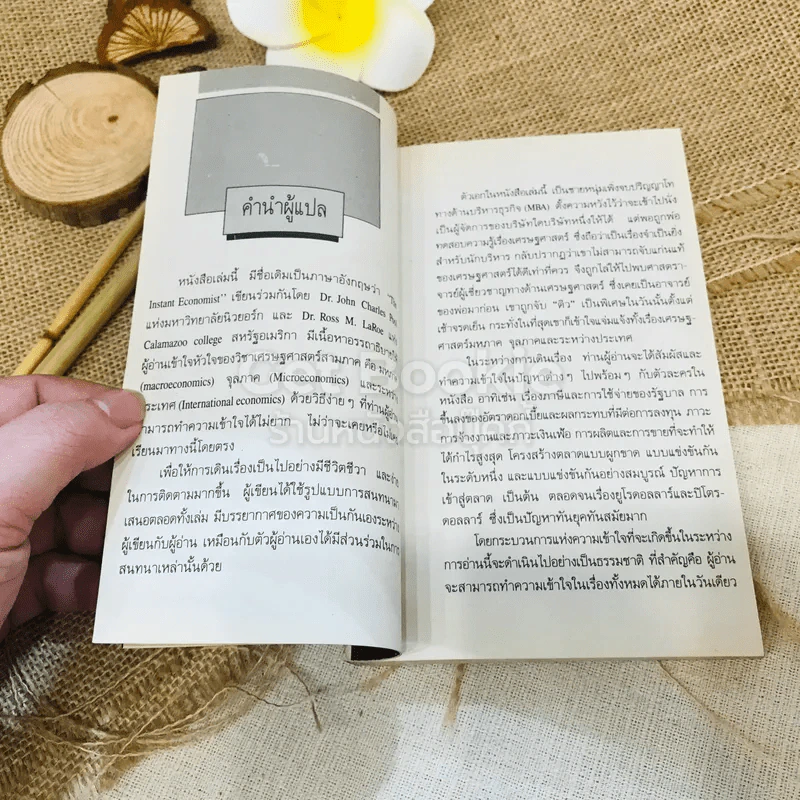 คำนำผู้แปล
หนังสือเล่มนี้ มีชื่อเดิมเป็นภาษาอังกฤษว่า "The
Instant Economist" เขียนร่วมกันโดย Dr. John Charles
แห่งมหาวิทยาลัยนิวยอร์ก และ Dr. Ross M. LaRoe แห่ง
Calamazoo college สหรัฐอเมริกา มีเนื้อหาอรรถาธิบายให้
ผู้อ่านเข้าใจหัวใจของวิชาเศรษฐศาสตร์สามภาค คือ
(macroeconomics) จุลภาค (Microeconomics) และระหว่าง
ประเทศ (International economics) ด้วยวิธีง่าย ๆ ที่ท่านผู้อ่าน
สามารถทำความเข้าใจได้ไม่ยาก ไม่ว่าจะเคยหรือไม่เคย
เรียนมาทางนี้โดยตรง
เพื่อให้การเดินเรื่องเป็นไปอย่างมีชีวิตชีวา และง่าย
ในการติดตามมากขึ้น ผู้เขียนได้ใช้รูปแบบการสนทนามา
เสนอตลอดทั้งเล่ม มีบรรยากาศของความเป็นกันเองระหว่าง
ผู้เขียนกับผู้อ่าน เหมือนกับตัวผู้อ่านเองได้มีส่วนร่วมในการ
สนทนาเหล่านั้นด้วย
ตัวเอกในหนังสือเล่มนี้ เป็นชายหนุ่มเพิ่งจบปริญญาโท
ทางด้านบริหารธุรกิจ (MBA) ตั้งความหวังไว้ว่าจะเข้าไปนั่ง
เป็นผู้จัดการของบริษัทใดบริษัทหนึ่งให้ได้ แต่พอถูกพ่อ
ทดสอบความรู้เรื่องเศรษฐศาสตร์ ซึ่งถือว่าเป็นเรื่องจำเป็นยิ่ง
สำหรับนักบริหาร กลับปรากฏว่าเขาไม่สามารถจับแก่นแท้
ของเศรษฐศาสตร์ได้ดีเท่าที่ควร จึงถูกไล่ให้ไปพบศาสตรา-
จารย์ผู้เชี่ยวชาญทางด้านเศรษฐศาสตร์ ซึ่งเคยเป็นอาจารย์
ของพ่อมาก่อน เขาถูกจับ "ติว" เป็นพิเศษในวันนั้นตั้งแต่
เช้าจรดเย็น กระทั่งในที่สุดเขาก็เข้าใจแจ่มแจ้งทั้งเรื่องเศรษฐ-
ศาสตร์มหภาค จุลภาคและระหว่างประเทศ
ในระหว่างการเดินเรื่อง ท่านผู้อ่านจะได้สัมผัสและ
ทำความเข้าใจในปัญหาต่าง ๆ ไปพร้อมๆ กับตัวละครใน
หนังสือ อาทิเช่น เรื่องภาษีและการใช้จ่ายของรัฐบาล การ
ขึ้นลงของอัตราดอกเบี้ยและผลกระทบที่มีต่อการลงทุน ภาวะ
การจ้างงานและภาวะเงินเฟ้อ การผลิตและการขายที่จะทำให้
ได้กำไรสูงสุด โครงสร้างตลาดแบบผูกขาด แบบแข่งขันกัน
ในระดับหนึ่ง และแบบแข่งขันกันอย่างสมบูรณ์ ปัญหาการ
เข้าสู่ตลาด เป็นต้น ตลอดจนเรื่องยูโรดอลลาร์และปิโตร-
ดอลลาร์ ซึ่งเป็นปัญหาทันยุคทันสมัยมาก
โดยกระบวนการแห่งความเข้าใจที่จะเกิดขึ้นในระหว่าง
การอ่านนี้จะดำเนินไปอย่างเป็นธรรมชาติ ที่สำคัญคือ ผู้อ่าน
จะสามารถทำความเข้าใจในเรื่องทั้งหมดได้ภายในวันเดียว